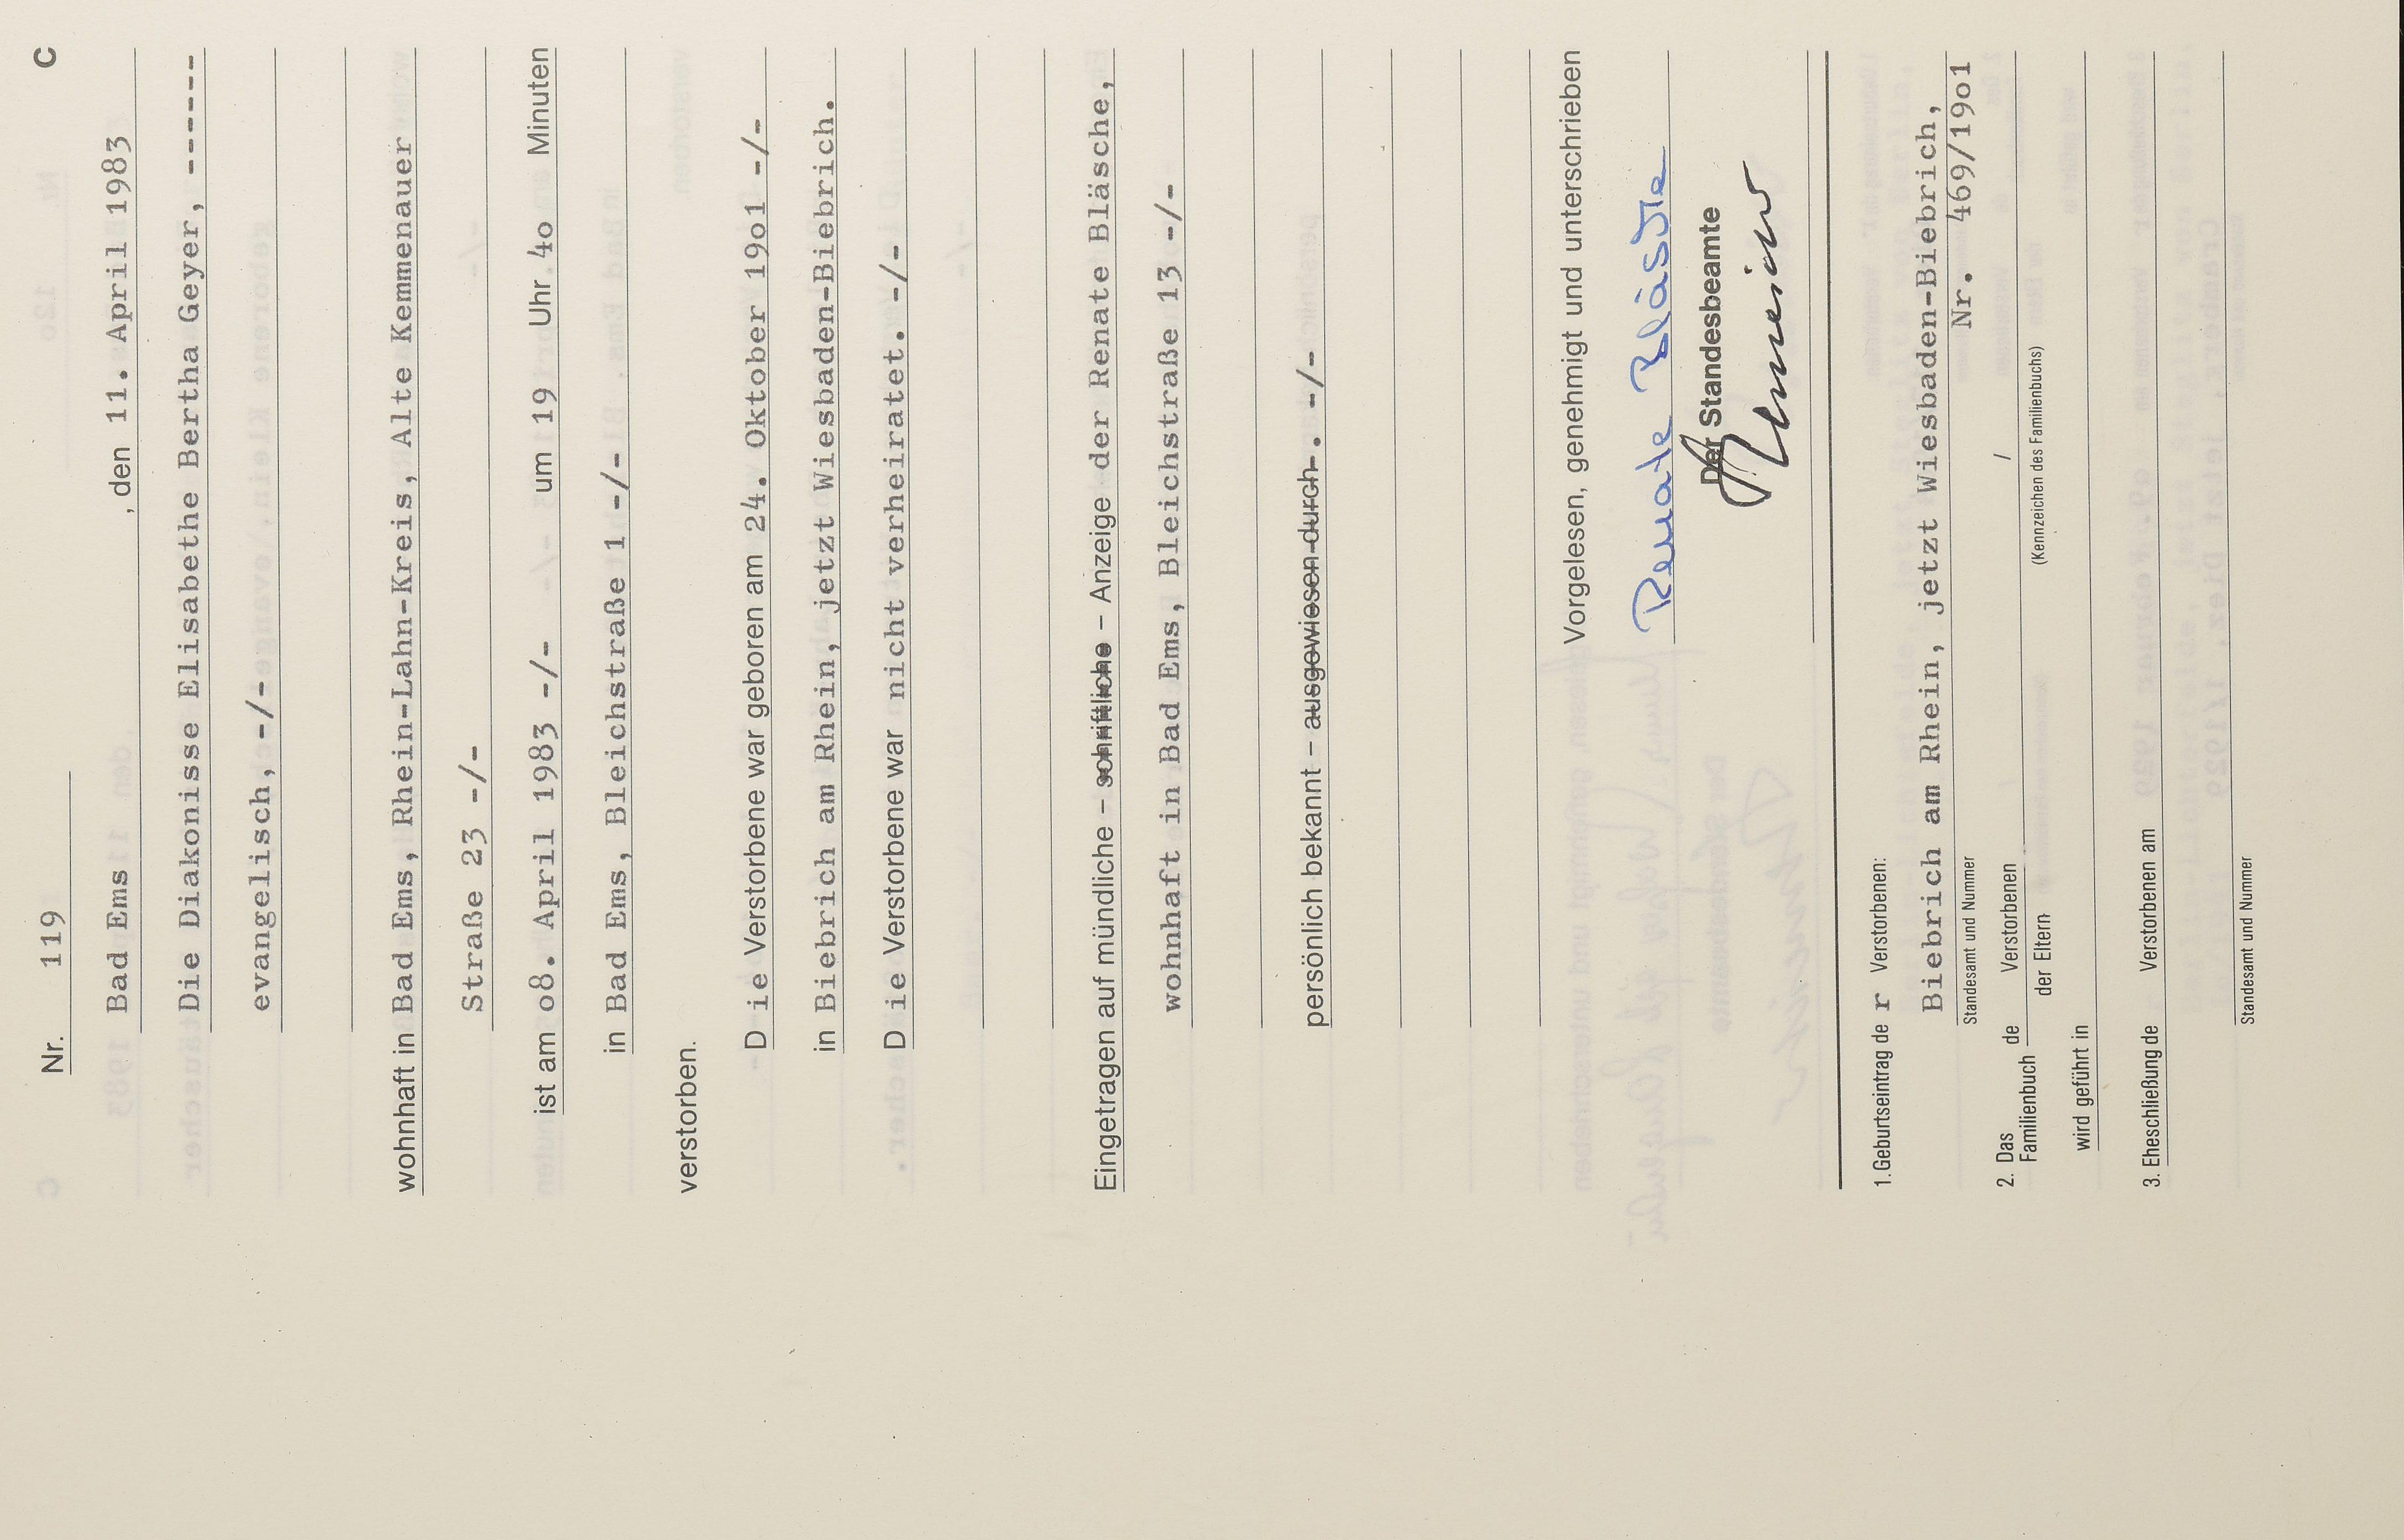 C
Nr. 119
Bad Ems , den 11. April 1983
Die Diakonisse Elisabethe Bertha Geyer, ------
evangelisch, -/-
wohnhaft in Bad Ems, Rhein-Lahn-Kreis, Alte Kemmenauer
Straße 23 -/-
ist am o8. April 1983 -/- um 19 Uhr 4o Minuten
in Bad Ems, Bleichstraße 1 -/-
verstorben.
D ie Verstorbene war geboren am 24. Oktober 19o1 -/-
in Biebrich am Rhein, jetzt Wiesbaden-Biebrich.
D ie Verstorbene war nicht verheiratet. -/-
Eingetragen auf mündliche – schriftliche – Anzeige der Renate Bläsche,
wohnhaft in Bad Ems, Bleichstraße 13 -/-
persönlich bekannt – ausgewiesen durch . -/-
Vorgelesen, genehmigt und unterschrieben
Renate Bläsche
Der Standesbeamte
1. Geburtseintrag de r Verstorbenen:
Biebrich am Rhein, jetzt Wiesbaden-Biebrich,
Nr. 469/19o1
Standesamt und Nummer
2. Das Familienbuch de Verstorbenen / der Eltern
(Kennzeichen des Familienbuchs)
wird geführt in
3. Eheschließung de Verstorbenen am
Standesamt und Nummer